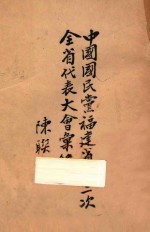 中國國民黨福建省
二次
全省代表大會彙
陳聯